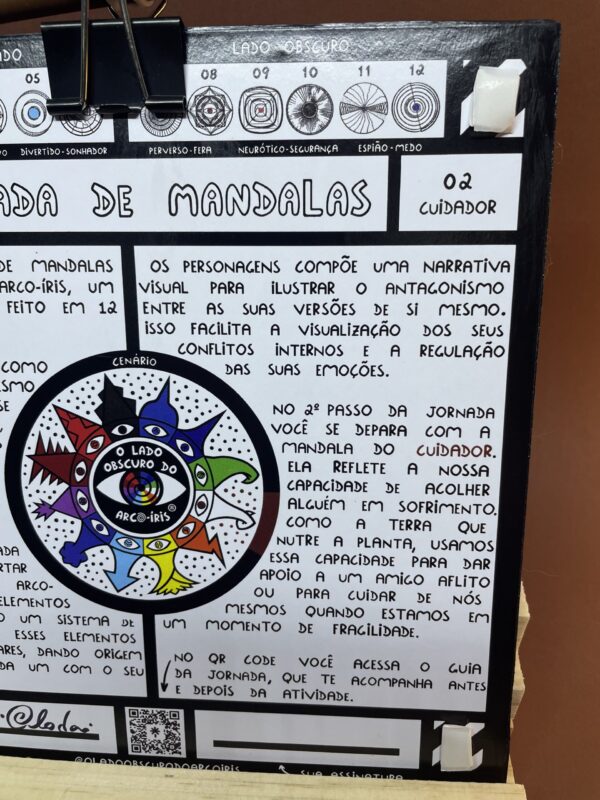 LADO OBSCURO
05
08
09
10
11
12
DIVERTIDO-SONHADOR
PERVERSO-FERA
NEURÓTICO-SEGURANÇA
ESPIÃO-MEDO
DE MANDALAS
02
CUIDADOR
DE MANDALAS
ARCO-ÍRIS, UM
FEITO EM 12
COMO
SE
OS PERSONAGENS COMPÕE UMA NARRATIVA
VISUAL PARA ILUSTRAR O ANTAGONISMO
ENTRE AS SUAS VERSÕES DE SI MESMO.
ISSO FACILITA A VISUALIZAÇÃO DOS SEUS
CONFLITOS INTERNOS E A REGULAÇÃO
DAS SUAS EMOÇÕES.
CENÁRIO
O LADO
OBSCURO DO
ARCO-ÍRIS®
NO 2º PASSO DA JORNADA
VOCÊ SE DEPARA COM A
MANDALA DO CUIDADOR.
ELA REFLETE A NOSSA
CAPACIDADE DE ACOLHER
ALGUÉM EM SOFRIMENTO.
COMO A TERRA QUE
NUTRE A PLANTA, USAMOS
ESSA CAPACIDADE PARA DAR
APOIO A UM AMIGO AFLITO
OU PARA CUIDAR DE NÓS
MESMOS QUANDO ESTAMOS EM
UM MOMENTO DE FRAGILIDADE.
ARCO-
ELEMENTOS
UM SISTEMA DE
ESSES ELEMENTOS
DANDO ORIGEM
UM COM O SEU
NO QR CODE VOCÊ ACESSA O GUIA
DA JORNADA, QUE TE ACOMPANHA ANTES
E DEPOIS DA ATIVIDADE.
@OLADOOBSCURODOARCOIRIS
SUA ASSINATURA